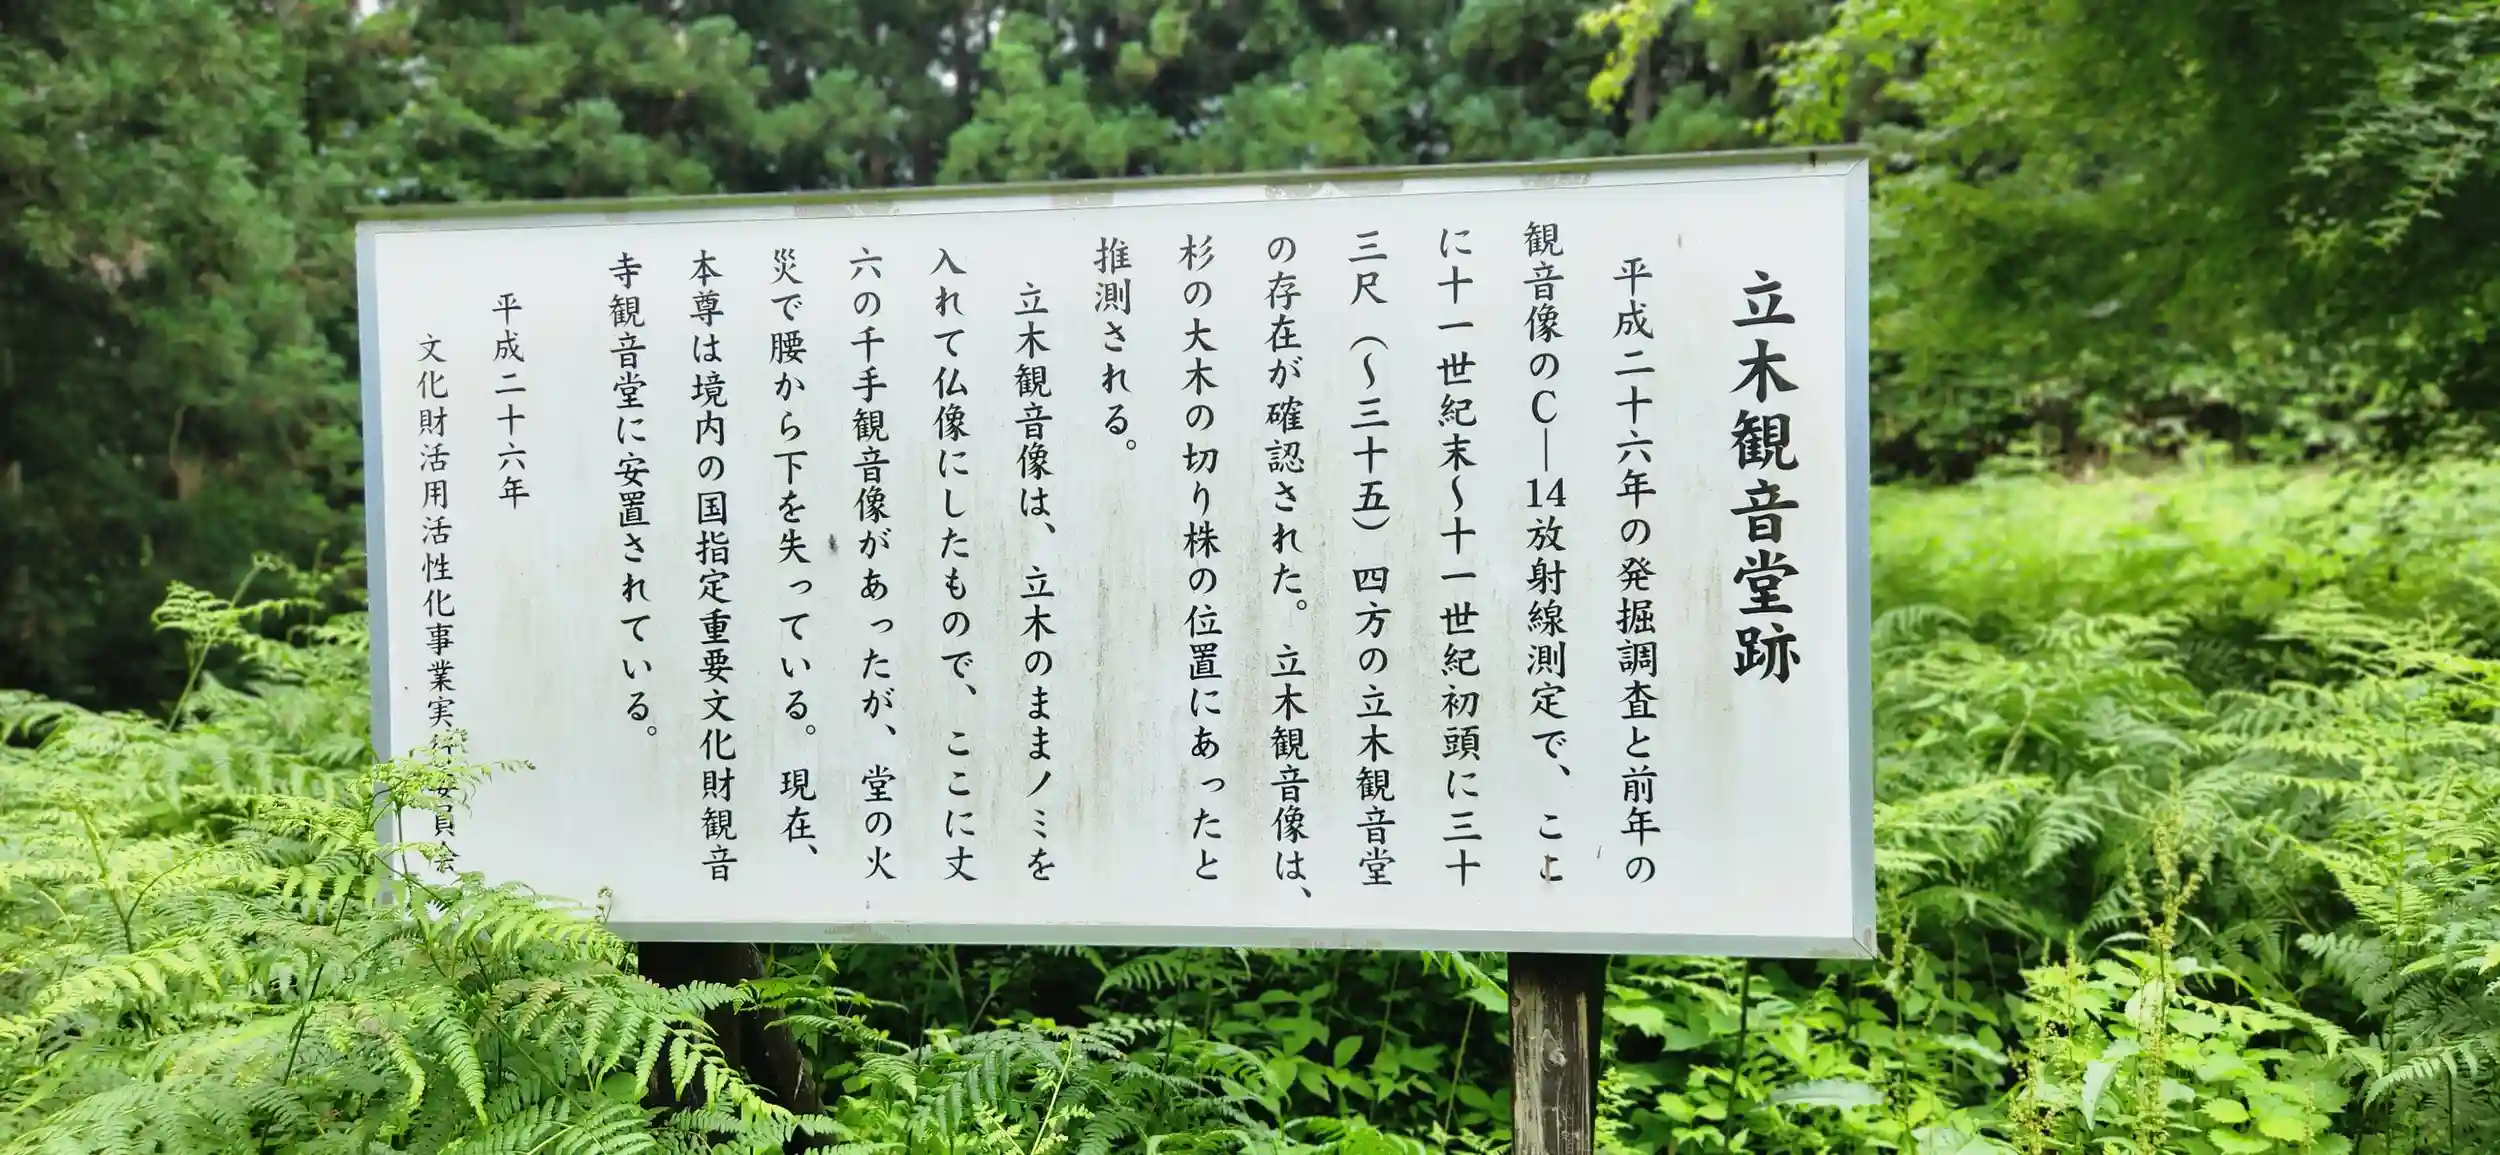 立木観音堂跡
平成二十六年の発掘調査と前年の
観音像のC―14放射線測定で、ここ
に十一世紀末～十一世紀初頭に三十
三尺（～三十五）四方の立木観音堂
の存在が確認された。立木観音像は、
杉の大木の切り株の位置にあったと
推測される。
立木観音像は、立木のままノミを
入れて仏像にしたもので、ここに丈
六の千手観音像があったが、堂の火
災で腰から下を失っている。現在、
本尊は境内の国指定重要文化財観音
寺観音堂に安置されている。
平成二十六年
文化財活用活性化事業実行委員会